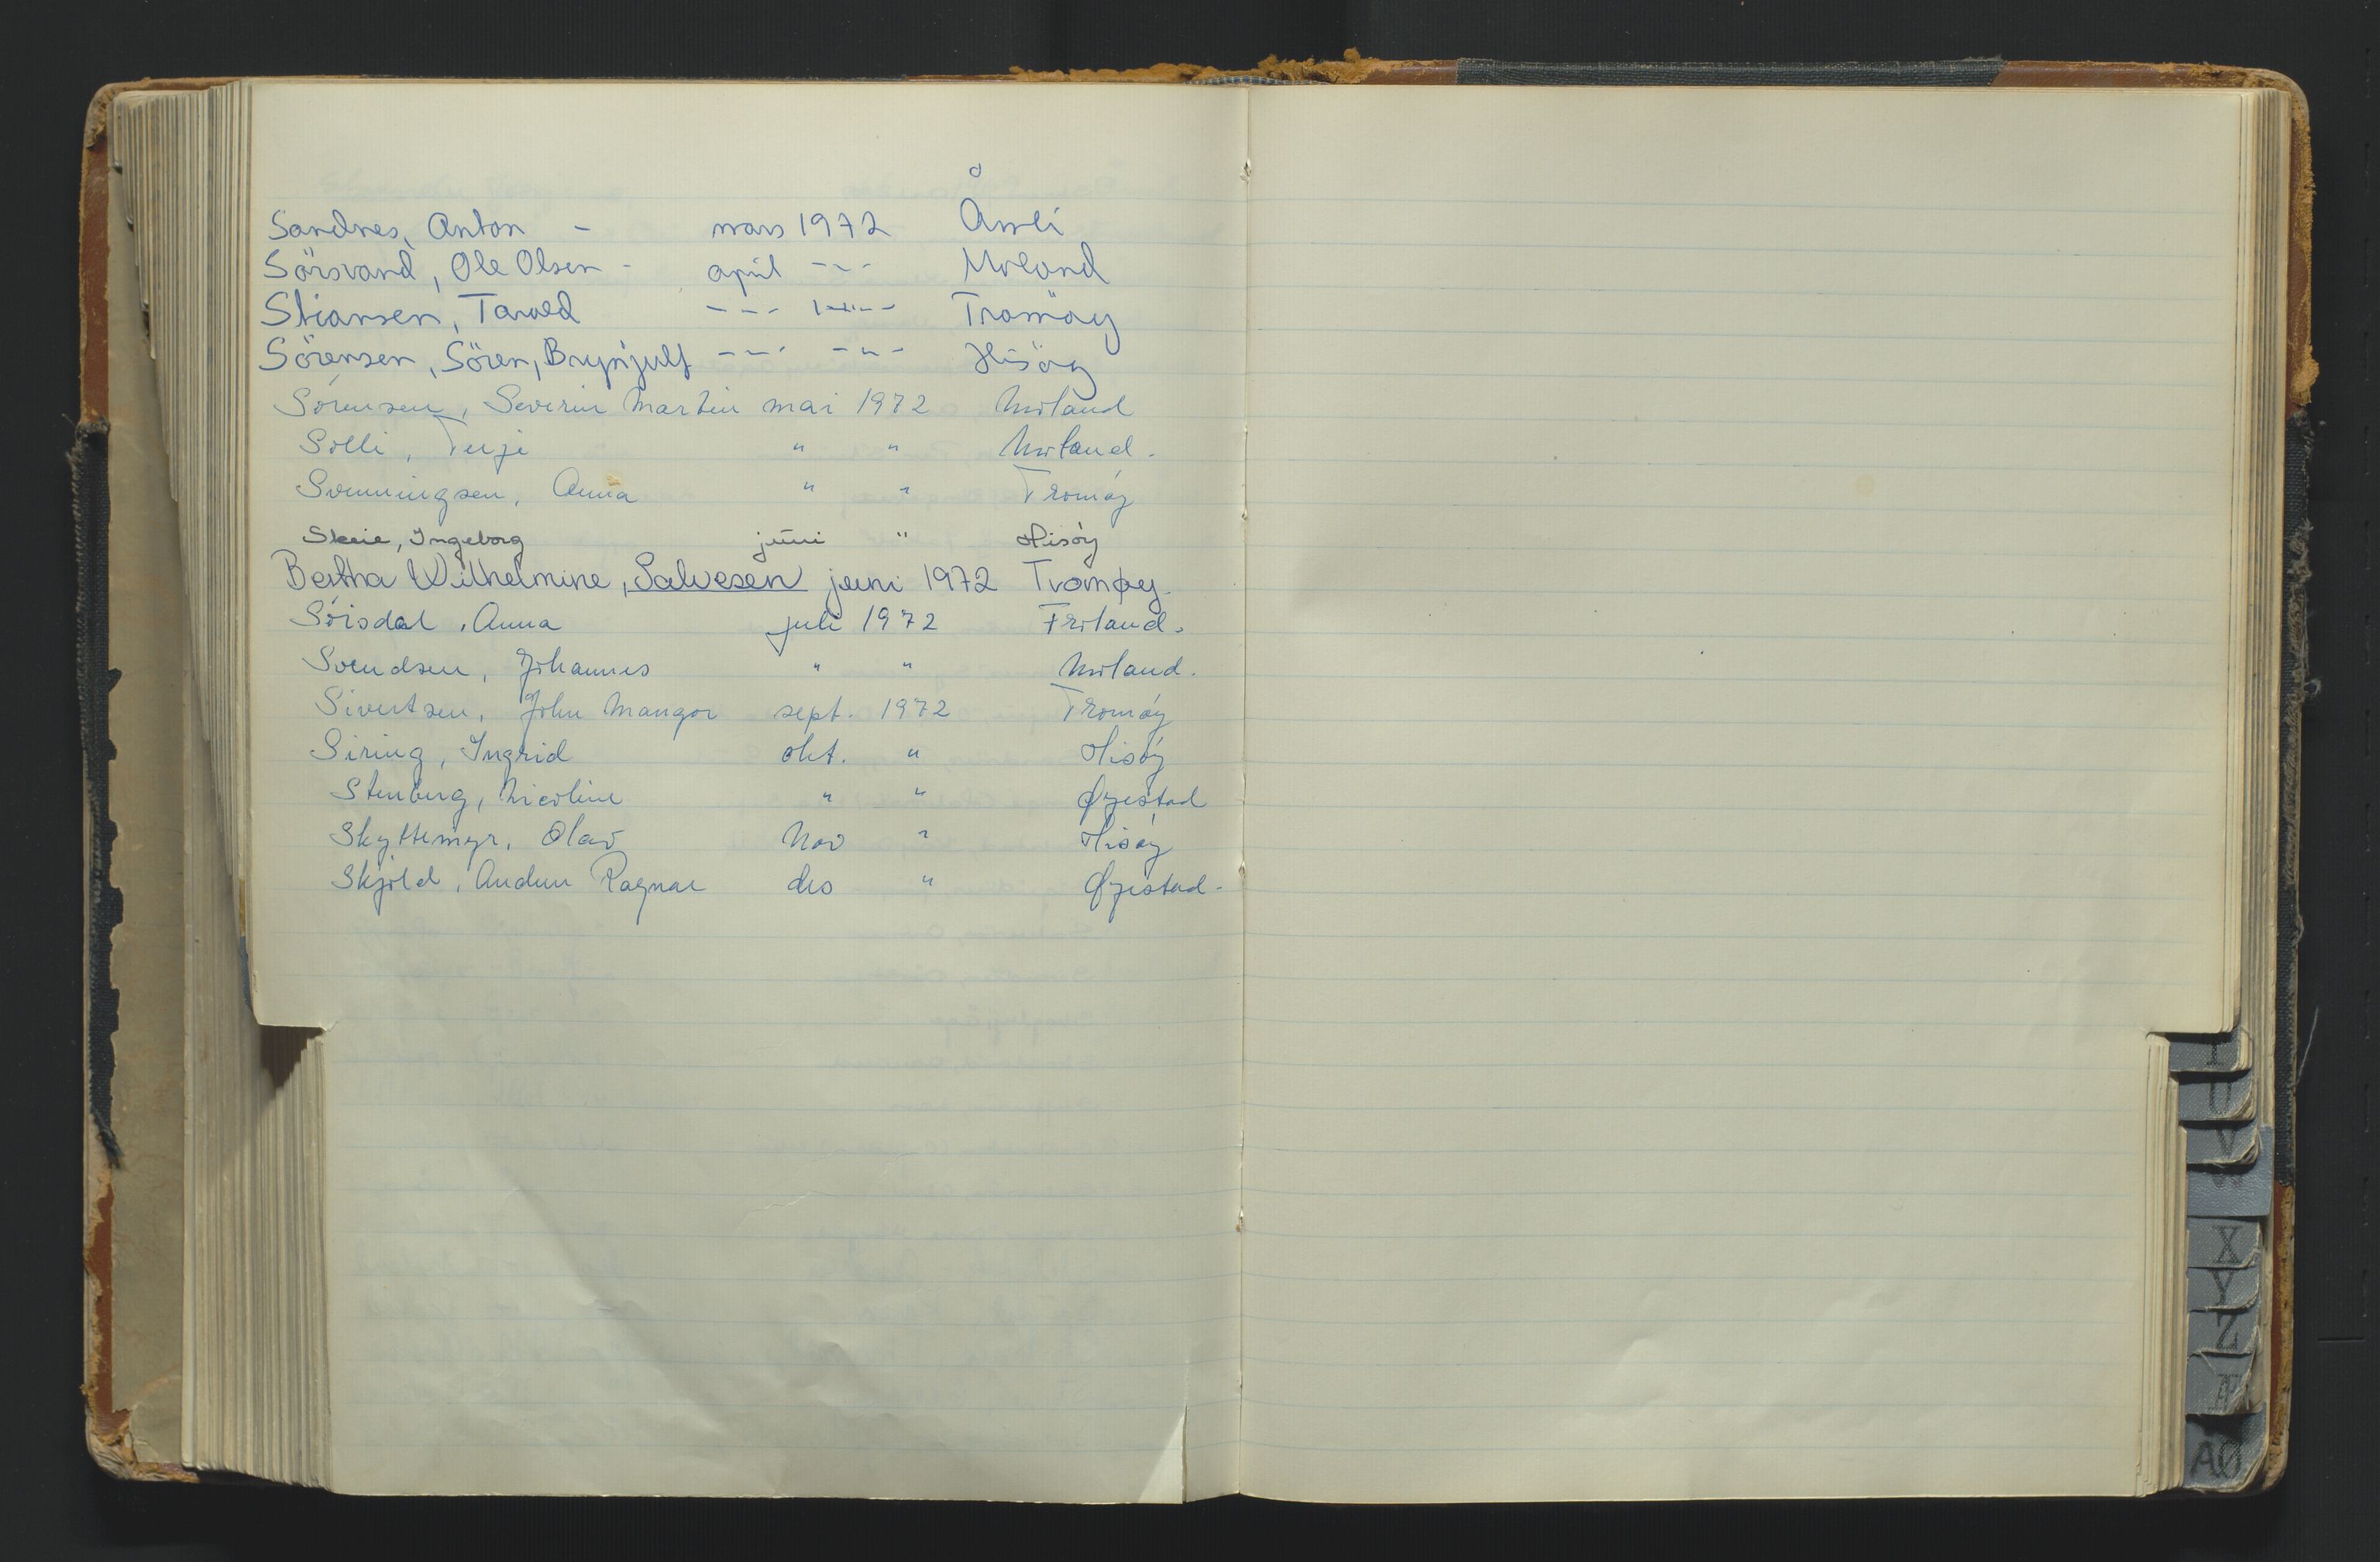 Sandnes, Anton - mars 1972 Åmli
Sörsvand, Ole Olsen - april -"- Moland
Stiansen, Tarald -"- -"- Tromöy
Sörensen, Sören, Brynjulf -"- -"- Hisöy
Sórensen, Severin Martin mai 1972 Moland
Solli, Terje " " Moland.
Svenningsen, Anna " " Tromóy
Skeie, Ingeborg juni " Hisóy
Bertha Wilhelmine, Salvesen juni 1972 Tromøy.
Sórsdal, Anna juli 1972 Froland.
Svendsen, Johannes " " Moland.
Sivertsen, John Mangor sept. 1972 Tromóy
Siring, Ingrid okt. " Hisóy
Stenberg, Nicoline " " Øyestad
Skyttemyr, Olav Nov " Hisóy
Skjold, Audun Ragnar des " Øyestad-
T
U
V
W
X
Y
Z
Æ
AØ